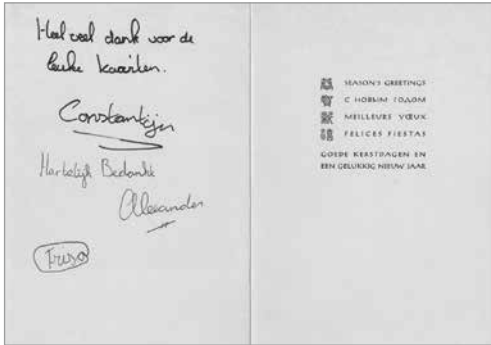 Heel veel dank voor de
leuke kaarten.
Constantijn
Hartelijk Bedankt
Alexander
Friso
SEASON'S GREETINGS
С НОВЫМ ГОДОМ
MEILLEURS VŒUX
FELICES FIESTAS
GOEDE KERSTDAGEN EN
EEN GELUKKIG NIEUW JAAR